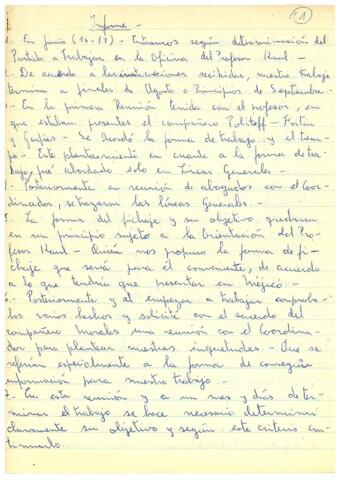 1
Informe.-
1.- En junio (16-17) - Entramos según determinación del
Partido a Trabajar en la Oficina del Profesor Kaul.-
2.- De acuerdo a las instrucciones recibidas, nuestro trabajo
termina a finales de Agosto o Principios de Septiembre.-
3.- En la primera Reunión tenida con el profesor, en
que estaban presentes el compañero Politoff - Fortín
y Garfias - Se Acordó la forma de trabajo y el tiem-
po - Este planteamiento en cuanto a la forma de tra-
bajo, fué abordado solo en Líneas Generales.-
4.- Posteriormente en reunión de abogados con el Coor-
dinador, se trazaron las líneas Generales.-
5. La forma del fichaje y su objetivo quedaron
en un principio sujeto a la Orientación del Pro-
fesor Kaul - Quién nos propuso la forma de fi-
chaje que sería para él conveniente, de acuerdo
a lo que tendría que presentar en Méjico.-
6. Posteriormente y al empezar a trabajar comproba-
mos varios hechos y solicité con el acuerdo del
compañero Morales una reunión con el Coordina-
dor para plantear nuestras inquietudes.- Que se
referían especialmente a la forma de conseguir
información para nuestro trabajo.-
7.- En esta reunión y a un mes y días de ter-
minar el trabajo se hace necesario determinar
claramente su objetivo y según este criterio con-
tinuarlo.